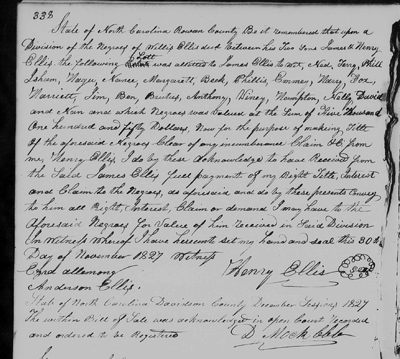 338
State of North Carolina Rowan County Be it remembered that upon a
Division of the Negroes of Willis Ellis decd between his Two Sons James & Henry
Ellis the following Lott was allotted to James Ellis to wit, Ned, Fanny, Phill
Isham, Nancy, Margarett, Beck, Phillis, Emmey, Mary,
Harriett, Jim, Ben, Brutus, Anthony, Viney, Hampton, Kelly, David
and Nan and which Negroes was Valued at the Sum of Five Thousand
One hundred and fifty Dollars. Now for the purpose of making Title
of the aforesaid Negroes Clear of any incumberance Claim &c from
me, Henry Ellis, I do by these acknowledge to have Received from
the Said James Ellis full payment of my Right Title, Interest
and Claim to the Negroes, as aforesaid and do by these presents Convey
to him all Right, Interest, Claim or demand I may have to the
Aforesaid Negroes for Value of him Received in Said Division
In Witness whereof I have hereunto set my hand and seal this 30th
Day of November 1827 Witness
Henry Ellis seal
Anderson Ellis.
State of North Carolina Davidson County December Sessions 1827
The within Bill of Sale was acknowledged in open Court recorded
and ordered to be Registered D. Mock